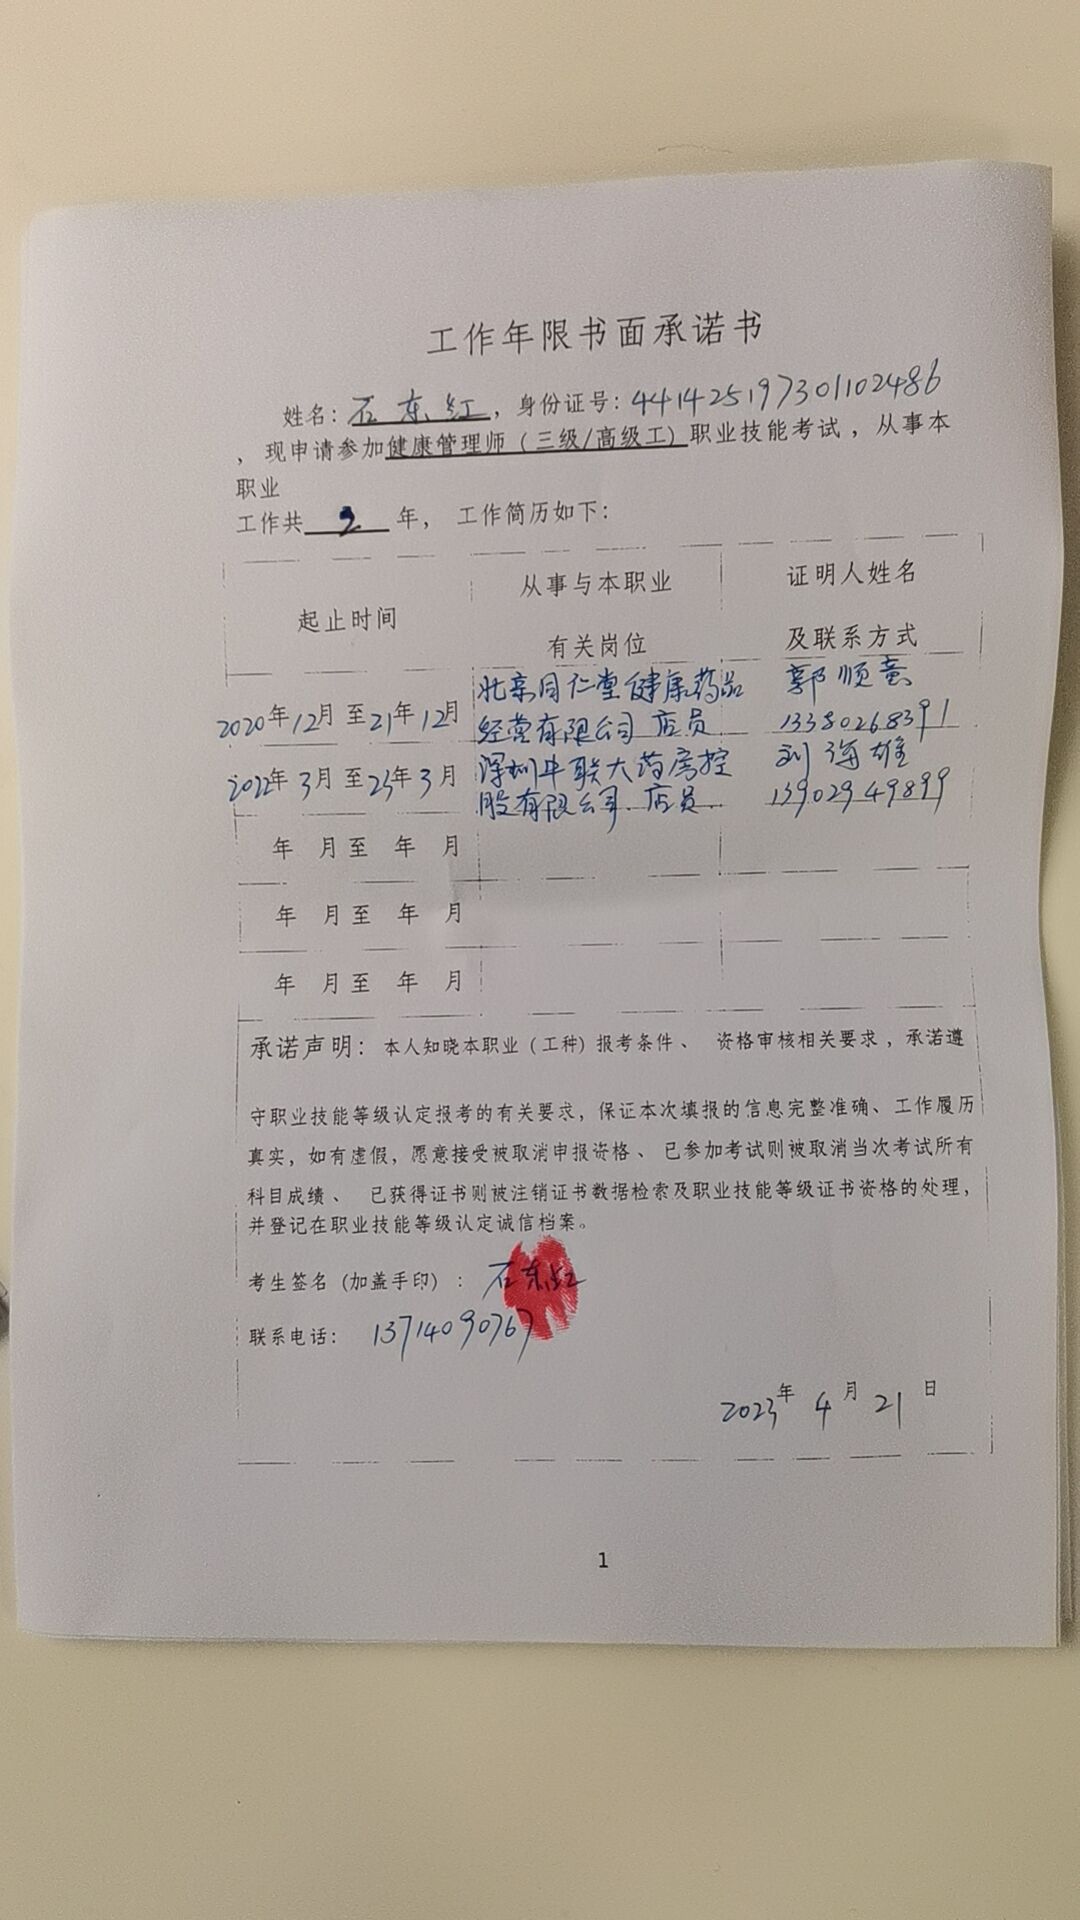 工作年限书面承诺书
姓名：石东红，身份证号：441425197301102486
，现申请参加健康管理师（三级/高级工）职业技能考试，从事本
职业
工作共 2 年， 工作简历如下：
起止时间
从事与本职业
有关岗位
证明人姓名
及联系方式
2020年12月至21年12月
北京同仁堂健康药品
经营有限公司 店员
郭顺
13380268391
2022年3月至23年3月
深圳中联大药房控
股有限公司 店员
刘海雄
13902949899
年 月至 年 月
年 月至 年 月
年 月至 年 月
承诺声明：本人知晓本职业（工种）报考条件、 资格审核相关要求，承诺遵
守职业技能等级认定报考的有关要求，保证本次填报的信息完整准确、工作履历
真实，如有虚假，愿意接受被取消申报资格、 已参加考试则被取消当次考试所有
科目成绩、 已获得证书则被注销证书数据检索及职业技能等级证书资格的处理，
并登记在职业技能等级认定诚信档案。
考生签名（加盖手印）：石东红
联系电话：13714090767
2023年4月21日
1